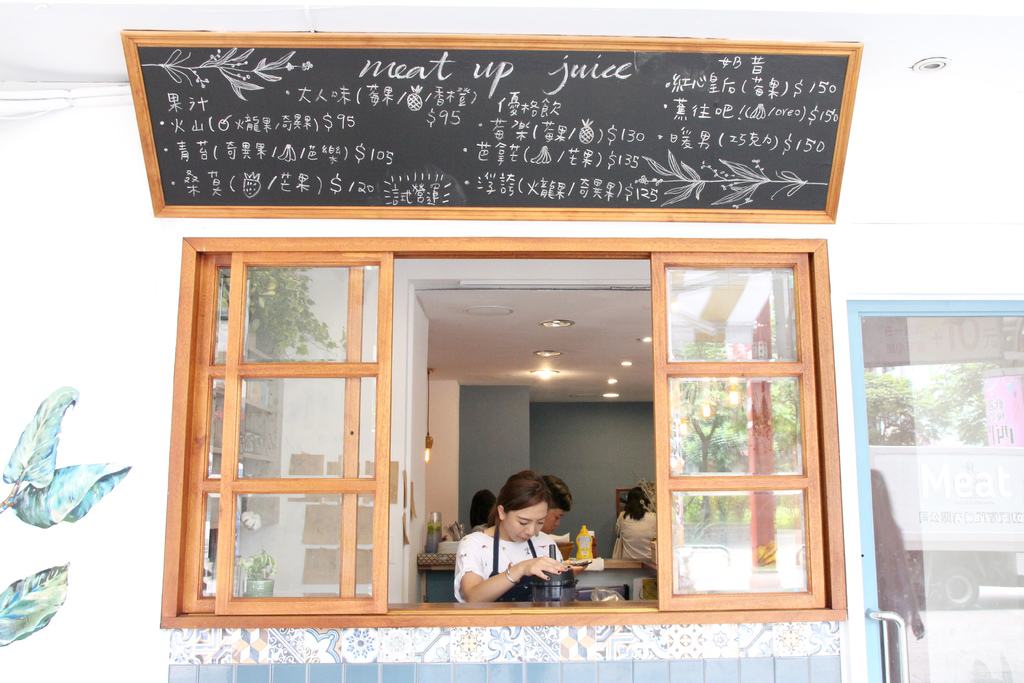 meat up juice
果汁
大人味(莓果/🍍/香橙)
$95
火山(火龍果/奇異果)$95
青苔(奇異果/🍌/芭樂)$105
桑莫(🍓/芒果)$120
試式營運
優格飲
莓樂(莓果/🍍)$130
芭拿芒(🍌/芒果)$135
浮誇(火龍果/奇異果)$125
奶昔
紅心皇后(莓果)$150
蕉往吧!(🍌/oreo)$150
暖男(巧克力)$150
Meat